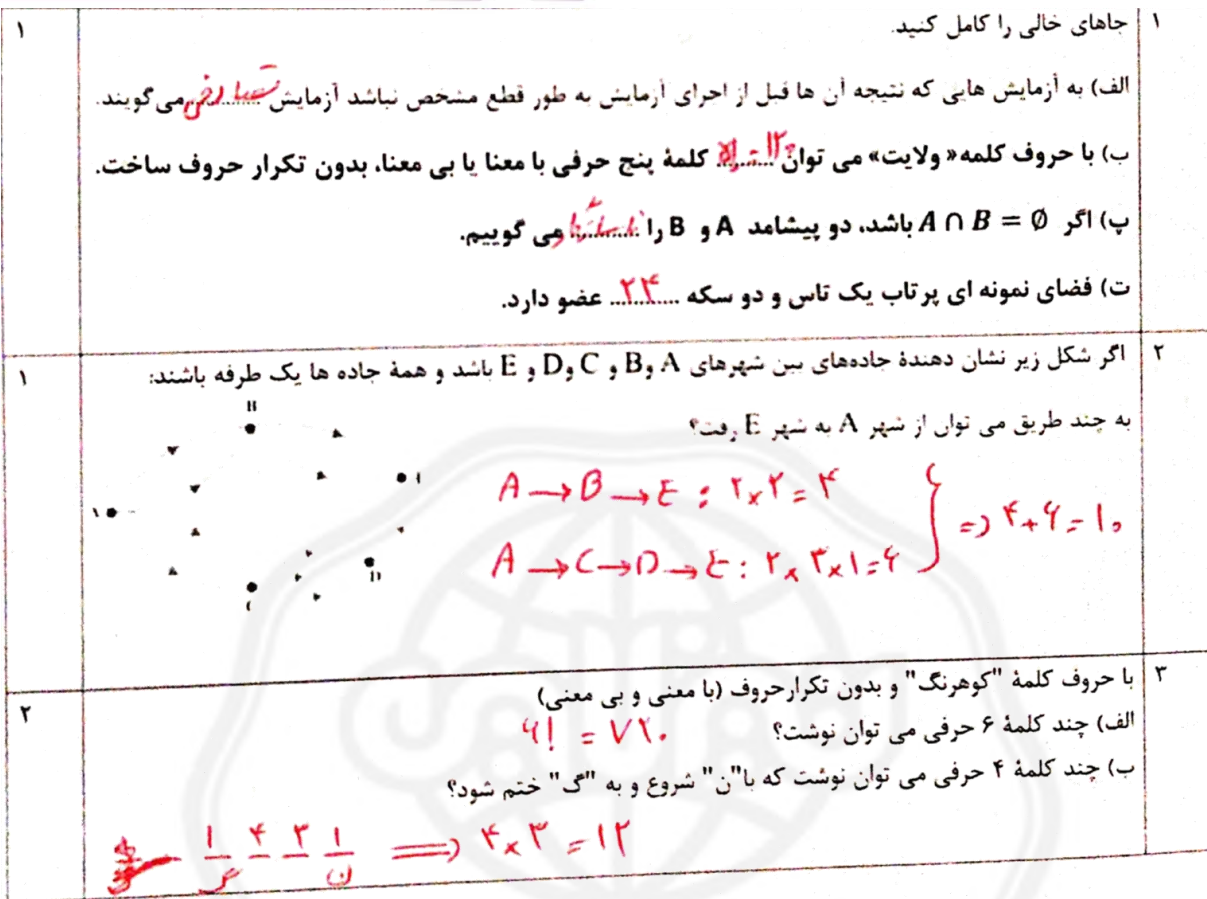 ۱ جاهای خالی را کامل کنید. ۱
الف) به آزمایش هایی که نتیجه آن ها قبل از اجرای آزمایش به طور قطع مشخص نباشد آزمایش ...تصادفی... می گویند.
ب) با حروف کلمه« ولایت» می توان ........ کلمهٔ پنج حرفی با معنا یا بی معنا، بدون تکرار حروف ساخت.
پ) اگر A ∩ B = ∅ باشد، دو پیشامد A و B را ...ناسازگار... می گوییم.
ت) فضای نمونه ای پرتاب یک تاس و دو سکه ...۲۴... عضو دارد.
۲ اگر شکل زیر نشان دهندهٔ جاده‌های بین شهرهای A و B و C و D و E باشد و همهٔ جاده ها یک طرفه باشند: ۱
به چند طریق می توان از شهر A به شهر E رفت؟
B
A → B → E : ۲ × ۲ = ۴
A → C → D → E : ۲ × ۳ × ۱ = ۶
} => ۴ + ۶ = ۱۰
D
۳ با حروف کلمهٔ "کوهرنگ" و بدون تکرارحروف (با معنی و بی معنی) ۲
الف) چند کلمهٔ ۶ حرفی می توان نوشت؟ ۶! = ۷۲۰
ب) چند کلمهٔ ۴ حرفی می توان نوشت که با"ن" شروع و به "گ" ختم شود؟
۱ ۴ ۳ ۱ => ۴ × ۳ = ۱۲
گ ن